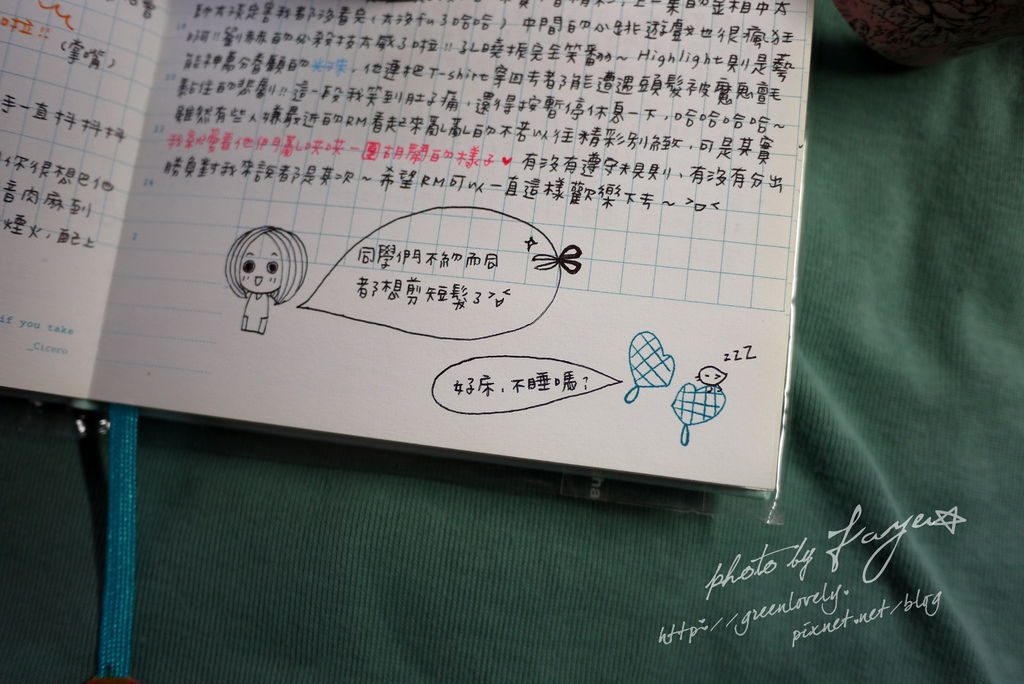 啦!!
(掌嘴)
手一直抖抖抖
你很想把他
音肉麻到
煙火,配上
if you take
_Cicero
都沒看完(太沒fu了哈哈) 中間的心跳遊戲也很瘋狂
啊!! 劉在石的必殺技太威了啦!! 了 Highlight則是藝
能神萬分眷顧的光洙,他連把T-shirt拿回去都能遭遇頭髮被魔鬼氈
黏住的悲劇!! 這一段我笑到肚子痛,還得按暫停休息一下,哈哈哈哈~
雖然有些人嫌最近的RM看起來亂亂的不若以往精彩別緻,可是其實
我就愛看他們亂哄哄一團胡鬧的樣子♥ 有沒有遵守規則、有沒有分出
勝負對我來說都是其次~希望RM可以一直這樣歡樂下去~ >ㅁ<
22
24
2
同學們不約而同
都想剪短髮了>ㅁ<
zzZ
好床,不睡嗎?
photo by Faye☆
http://greenlovely.
pixnet.net/blog